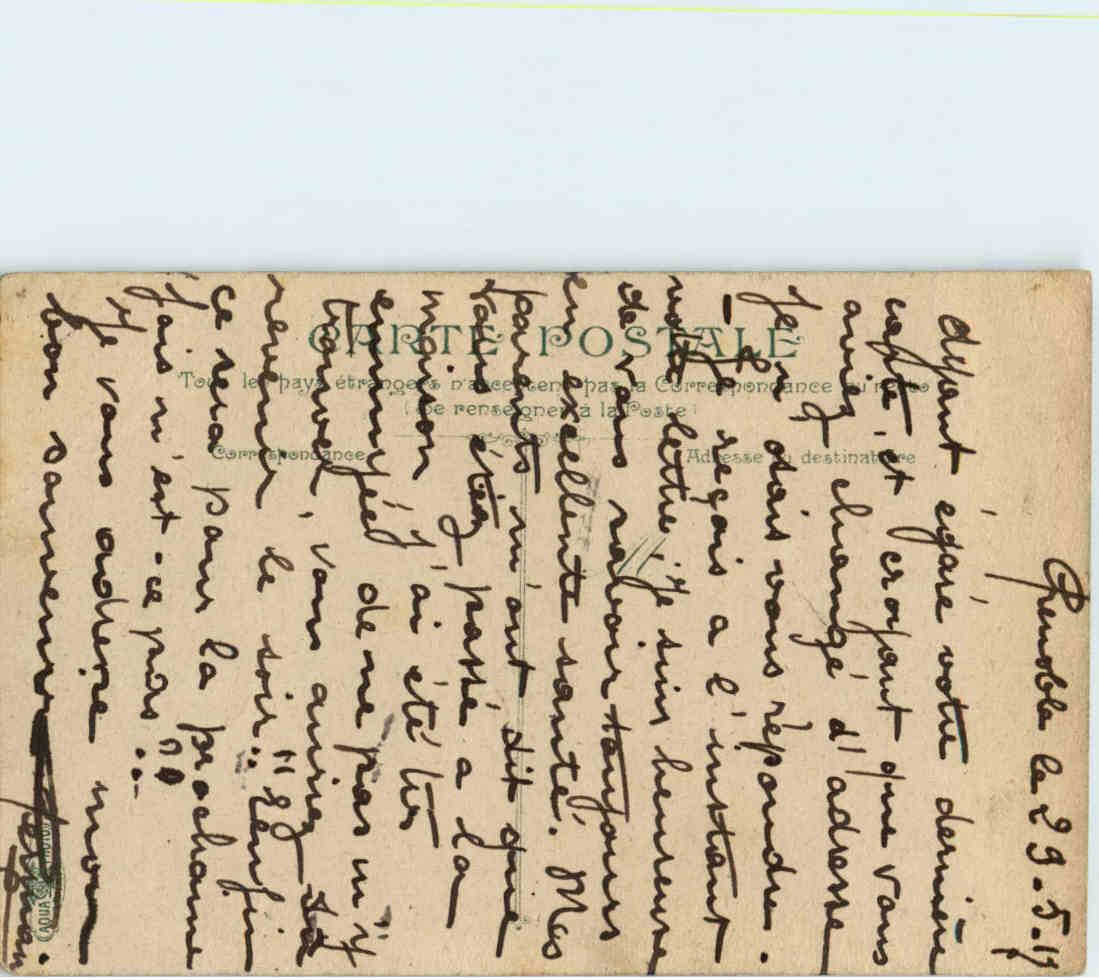 CARTE POSTALE
Tous les pays étrangers n'acceptent pas la Correspondance au recto
(Se renseigner à la Poste)
Correspondance
Adresse du destinataire
le 29.5.17
Ayant égaré votre dernière
carte, et croyant que vous
aviez changé d'adresse
Je n'osais vous répondre.
- Et je reçois a l'instant
votre lettre, je suis heureuse
de vous savoir toujours
en excellente santé. Mes
parents m'ont dit que
vous étiez passé a la
maison j'ai été très
ennuyée de ne pas m'y
trouver, vous auriez dû
revenir le soir.. " Enfin
ce sera pour la prochaine
fois n'est-ce pas ??
Je vous adresse mon
bon souvenir
AQUA PHOTO